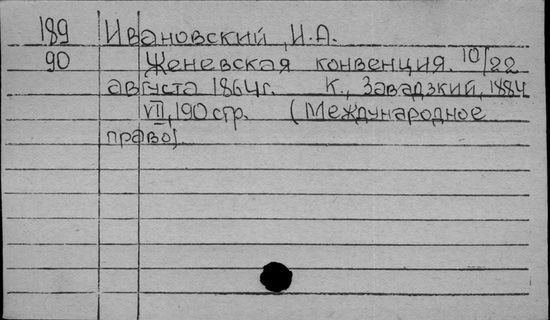 189 Ивановский, И.А.
90 Женевская конвенция. 10/22
августа 1864г. К., Завадзкий, 1884
VII, 190 стр. (Международное
право)